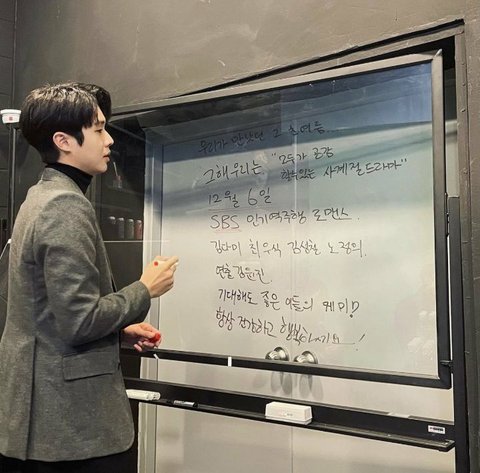 우리가 만났던 그 초여름...
그해 우리는 "모두가 공감
할수있는 사계절 드라마"
12월 6일
SBS 인기역주행 로맨스.
김다미 최우식 김성철 노정의.
연출 김윤진.
기대해도 좋은 이들의 케미!?
항상 건강하고 행복하세요!